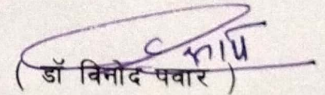 ( डॉ विनोद पवार )